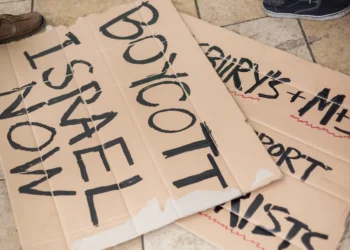 BOYCOTT
ISRAEL
NOW
BURY'S + M+S
PORT
ISTS